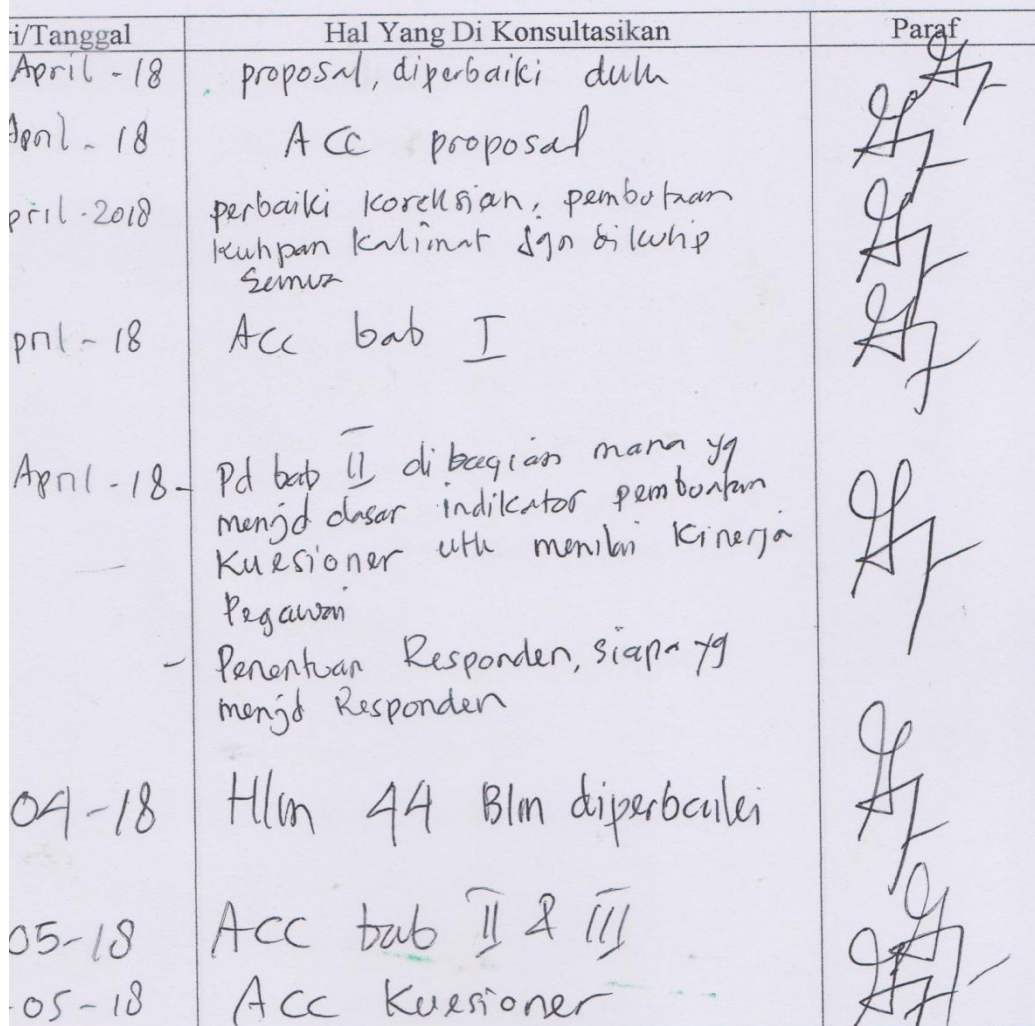 ri/Tanggal Hal Yang Di Konsultasikan Paraf
April - 18 proposal, diperbaiki dulu
April - 18 ACC proposal
pril - 2018 perbaiki koreksian, pembutaan
kutipan kalimat jgn dikutip
semua
pril - 18 Acc bab I
April - 18 - Pd bab II di bagian mana yg
menjd dasar indikator pembuatan
Kuesioner utk menilai Kinerja
Pegawai
- Penentuan Responden, siapa yg
menjd Responden
04-18 Hlm 44 Blm diperbaiki
05-18 ACC bab II & III
-05-18 ACC Kuesioner